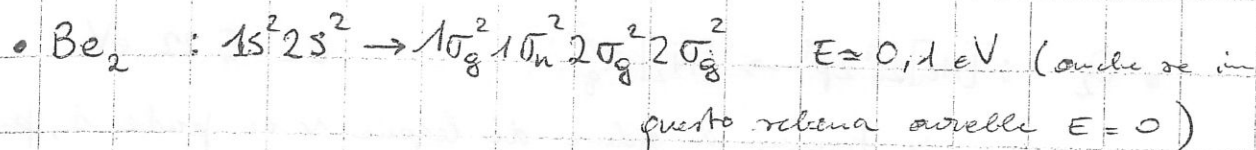 • Be₂ : 1s² 2s² → 1σg² 1σu² 2σg² 2σg² E ≃ 0,1 eV (anche se in
questo schema avrebbe E = 0)